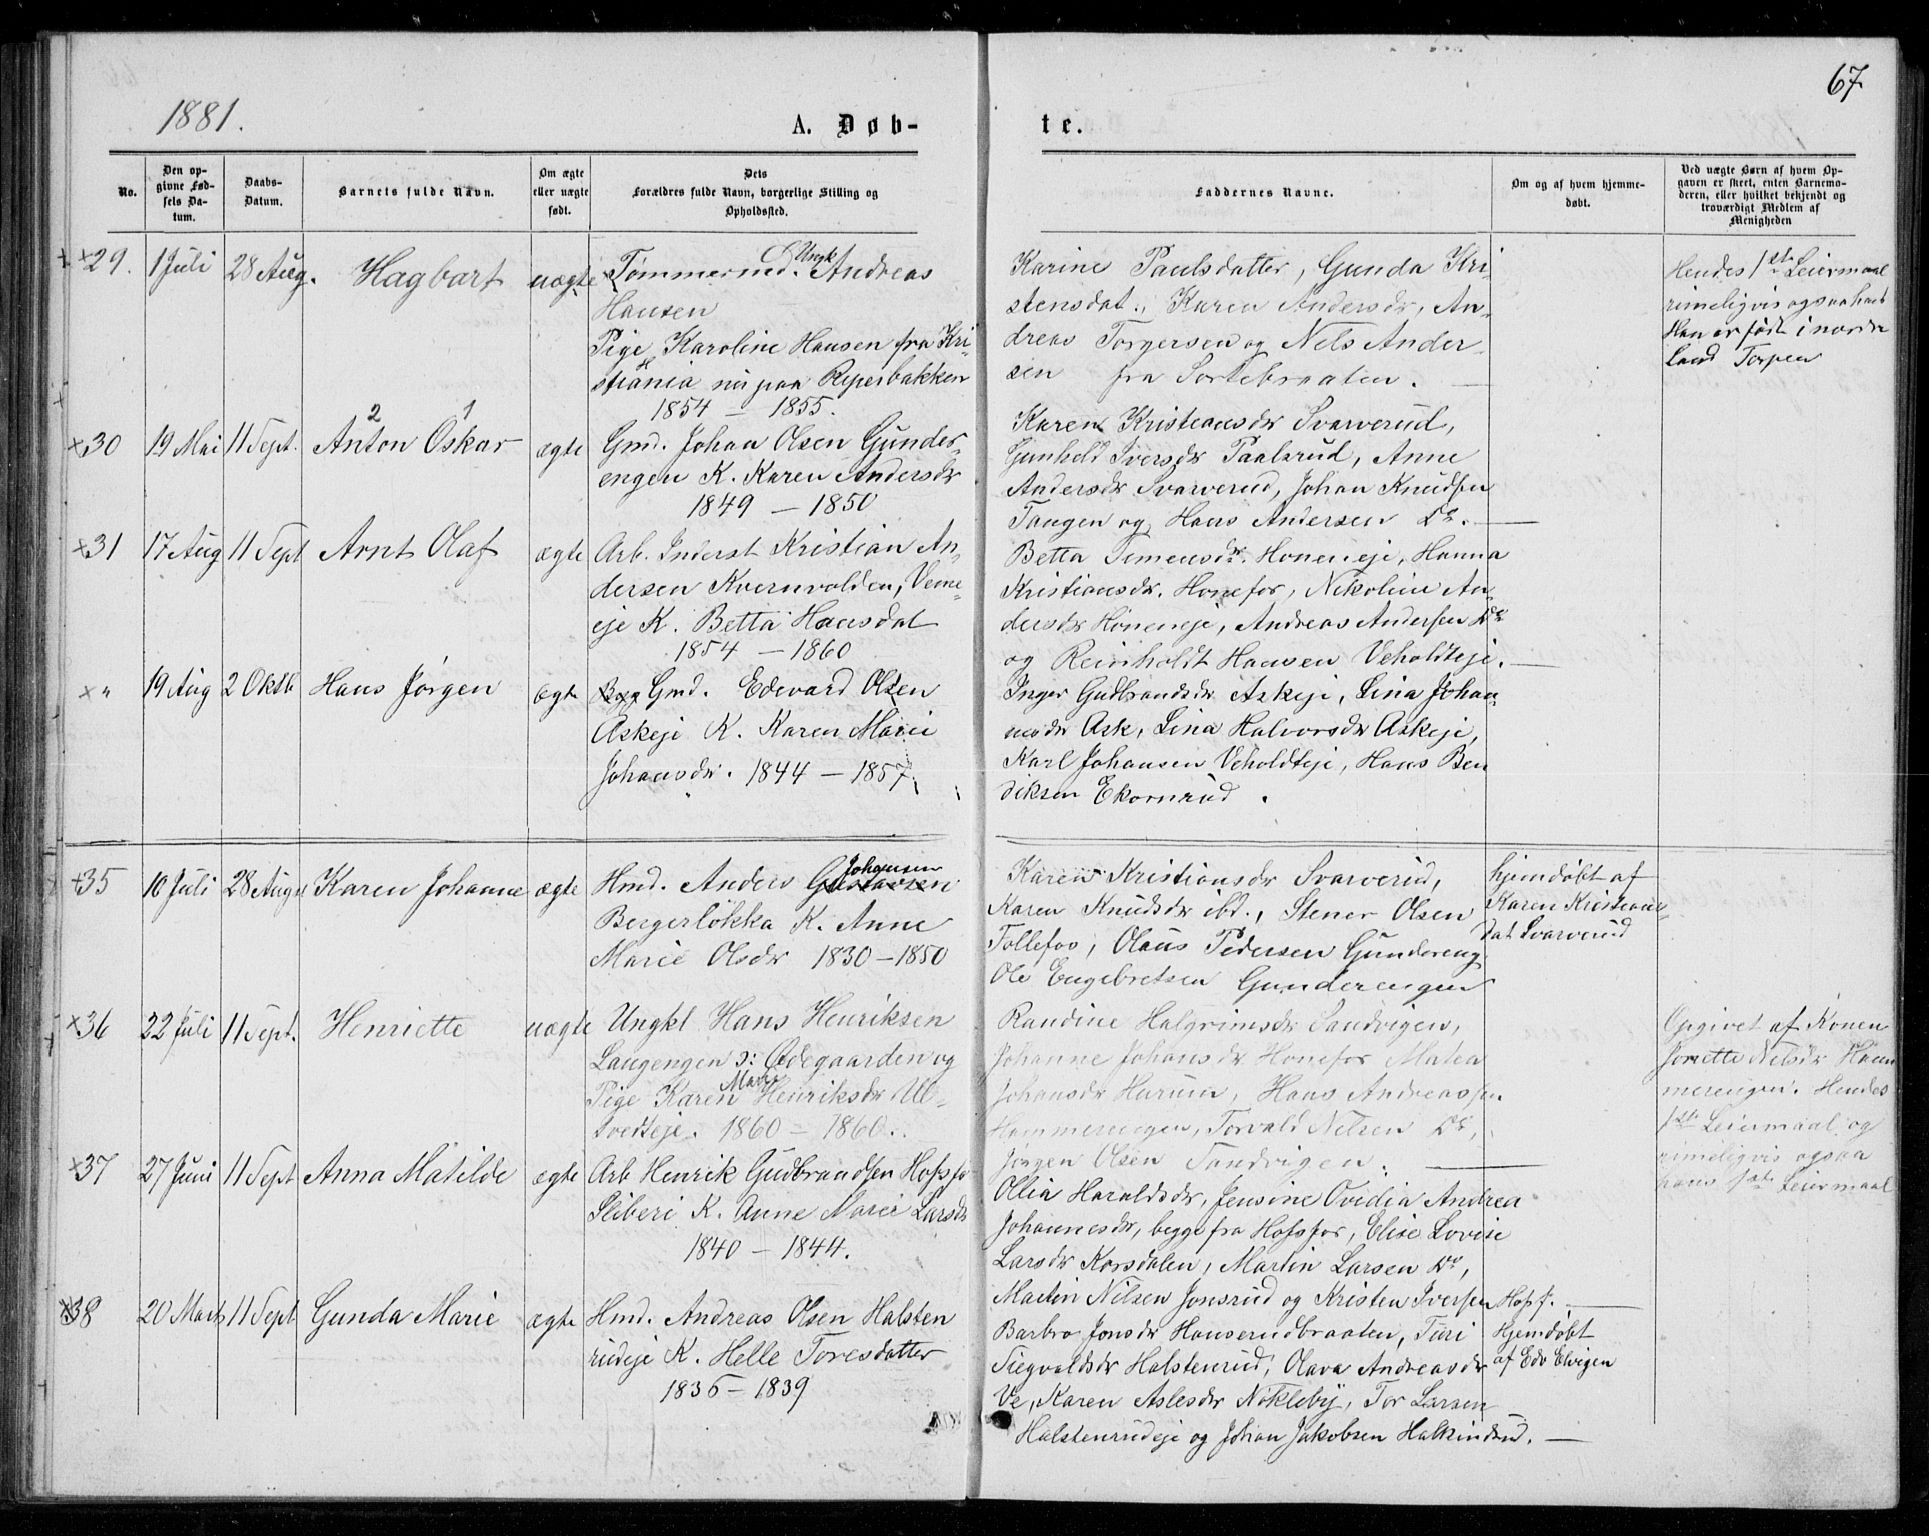 67
1881.
A. Døb-
te.
No.
Den op-
givne Fød-
sels Da-
tum.
Daabs-
Datum.
Barnets fulde Navn.
Om ægte
eller uægte
født.
Dets
Forældres fulde Navn, borgerlige Stilling og
Opholdssted.
Faddernes Navne.
Om og af hvem hjemme-
døbt.
Ved uægte Børn af hvem Op-
gaven er skeet, enten Barnemo-
deren, eller hvilket bekjendt og
troværdigt Medlem af
Menigheden
29. 1 Juli 28 Aug. Hagbart uægte
Tømmermd. Ungk Andreas
Hansen
Pige Karoline Hansen fra Kri-
stiania nu paa Ripersbakken
1854 – 1855.
Karine Paulsdatter, Gunda Kri-
stensdat., Karen Andersdr, An-
dreas Torgersen og Nels Ander-
sen fra Sortebraaten.
Hendes 1ste Leiermaal
rimeligvis ogsaa hans
Han er født i nordre
Land Torpen
30 19 Mai 11 Sept. Anton 2 Oskar 1 ægte
Gmd. Johan Olsen Gunder-
engen K. Karen Andersdr
1849 – 1850
Karen Kristiansdr Svarverud,
Gunhild Iversdr Paalsrud, Anne
Andersdr Svarverud, Johan Knudsen
Tangen og Hans Andersen Do.
31 17 Aug 11 Sept Arnt Olaf ægte
Arb. Inderst Kristian An-
dersen Kvernvolden, Veme-
eje K. Betta Hansdat
1854 – 1860
Betta Simensdr. Honeneje, Hanna
Kristiansdr. Honefos, Nikoline An-
dersdr Höneneje, Andreas Andersen Do
og Reinholdt Hansen Veholdteje.
" 19 Aug 2 Oktb Hans Jørgen ægte
Gmd. Edevard Olsen
Askeje K. Karen Marie
Johansdr. 1844 – 1857.
Inger Gudbrandsdr Askeje, Lina Johan-
nesdr Ask, Lina Halvorsdr Askeje,
Karl Johansen Veholdteje, Hans Ben
diksen Ekornrud.
35 10 Juli 28 August Karen Johanne ægte
Hmd. Anders Gustavsen Johansen
Bergerløkka K. Anne
Marie Olsdr 1830 – 1850
Karen Kristiansdr Svarverud,
Karen Knudsdr ibd., Stener Olsen
Tollefos, Olaus Pedersen Gundereng
Ole Engebretsen Gunderengen
hjemdøbt af
Karen Kristians-
dat Svarverud
36 22 Juli 11 Sept. Henriette uægte
Ungkl Hans Henriksen
Langengen ɔ: Ødegaarden og
Pige Karen Marie Henriksdr Ul-
tvedteje. 1860 – 1860.
Randine Halgrimsdr Sandvigen,
Johanne Johansdr Honefos Matea
Johansdr Hurum, Hans Andreassen
Hammerengen, Torvald Nelsen Do,
Jørgen Olsen Tandvigen.
Opgivet af Konen
Jonette Nelsdr Ham
merengen. Hendes
1ste Leiermaal og
rimeligvis ogsaa
hans 1ste Leiermaal
37 27 Juni 11 Sept Anna Matilde ægte
Arb Henrik Gudbrandsen Hofsfos
Sliberi K. Anne Marie Larsdr
1840 – 1844.
Ollia Haraldsdr, Jensine Ovidia Andrea
Johannesdr, begge fra Hofsfos, Elise Lovise
Larsdr Korsdalen, Martin Larsen Do,
Martin Nilsen Jonsrud og Kristen Iversen Hofsf.
38 20 Marts 11 Sept Gunda Marie ægte
Hmd. Andreas Olsen Halsten
rudeje K. Helle Toresdatter
1836 – 1839
Barbro Jonsdr Hanserudbraaten, Turi
Siegvaldsdr Halstenrud, Olava Andreasdr
Ve, Karen Aslesdr Nökleby, Tor Larsen
Halstenrudeje og Johan Jakobsen Halkinsrud.
Hjemdøbt
af Edv Elvigen